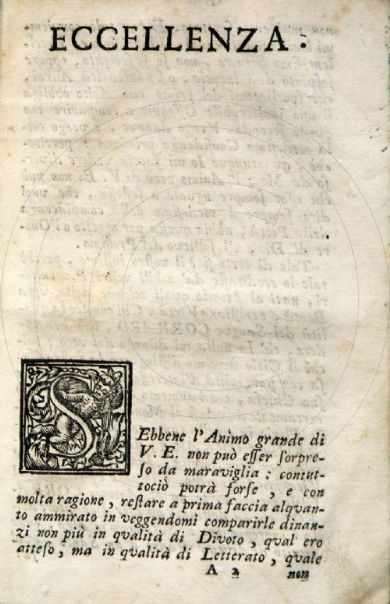 ECCELLENZA:
SEbbene l'Animo grande di
V. E. non può esser sorpre-
so da maraviglia: contut-
tociò potrà forse, e con
molta ragione, restare a prima faccia alquan-
to ammirato in veggendomi comparirle dinan-
zi non più in qualità di Divoto, qual ero
atteso, ma in qualità di Letterato, quale
A 2 non